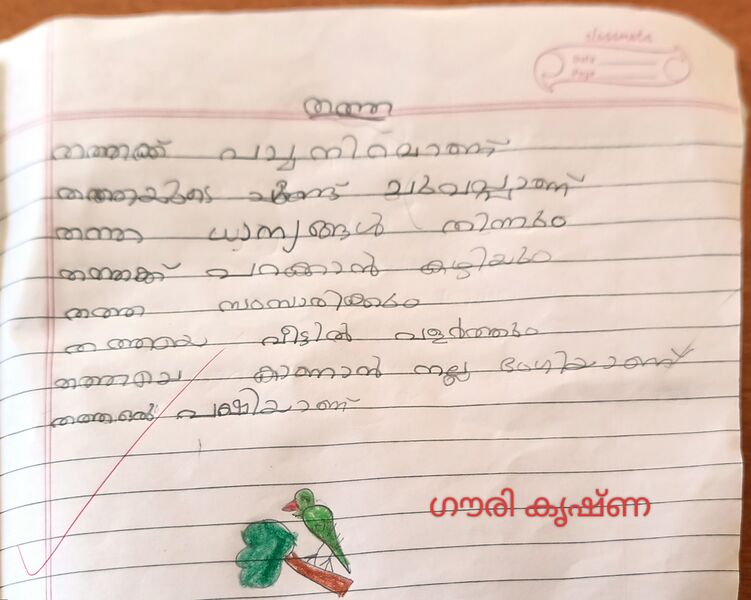 classmate
Date
Page
തത്ത
തത്തക്ക് പച്ച നിറമാണ്
തത്തയുടെ ചുണ്ട് ചുവപ്പാണ്
തത്ത ധാന്യങ്ങൾ തിന്നും
തത്തക്ക് പറക്കാൻ കഴിയും
തത്ത സംസാരിക്കും
തത്തയെ വീട്ടിൽ വളർത്തും
തത്തയെ കാണാൻ നല്ല ഭംഗിയാണ്
തത്ത ഒരു പക്ഷിയാണ്
ഗൗരി കൃഷ്ണ